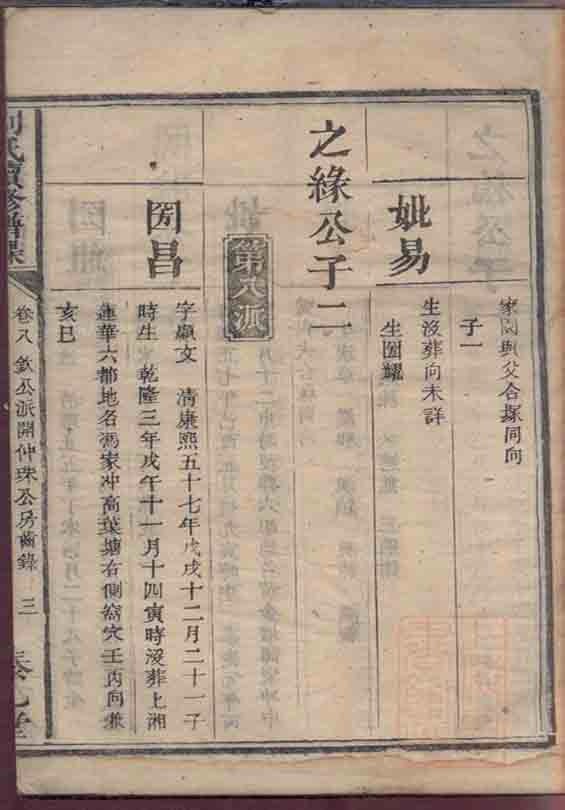 家園與父合塚同向
子一
妣易
生沒葬向未詳
生國耀
之緣公子二
第八派
國昌
字顯文 清康熙五十七年戊戌十二月二十一子
時生 乾隆三年戊午十一月十四寅時沒葬上湘
蓮華六都地名馮家冲高葉塘右側窩穴壬丙向兼
亥巳
氏續修譜
卷八 欽公派開仲珠公房齒錄 三